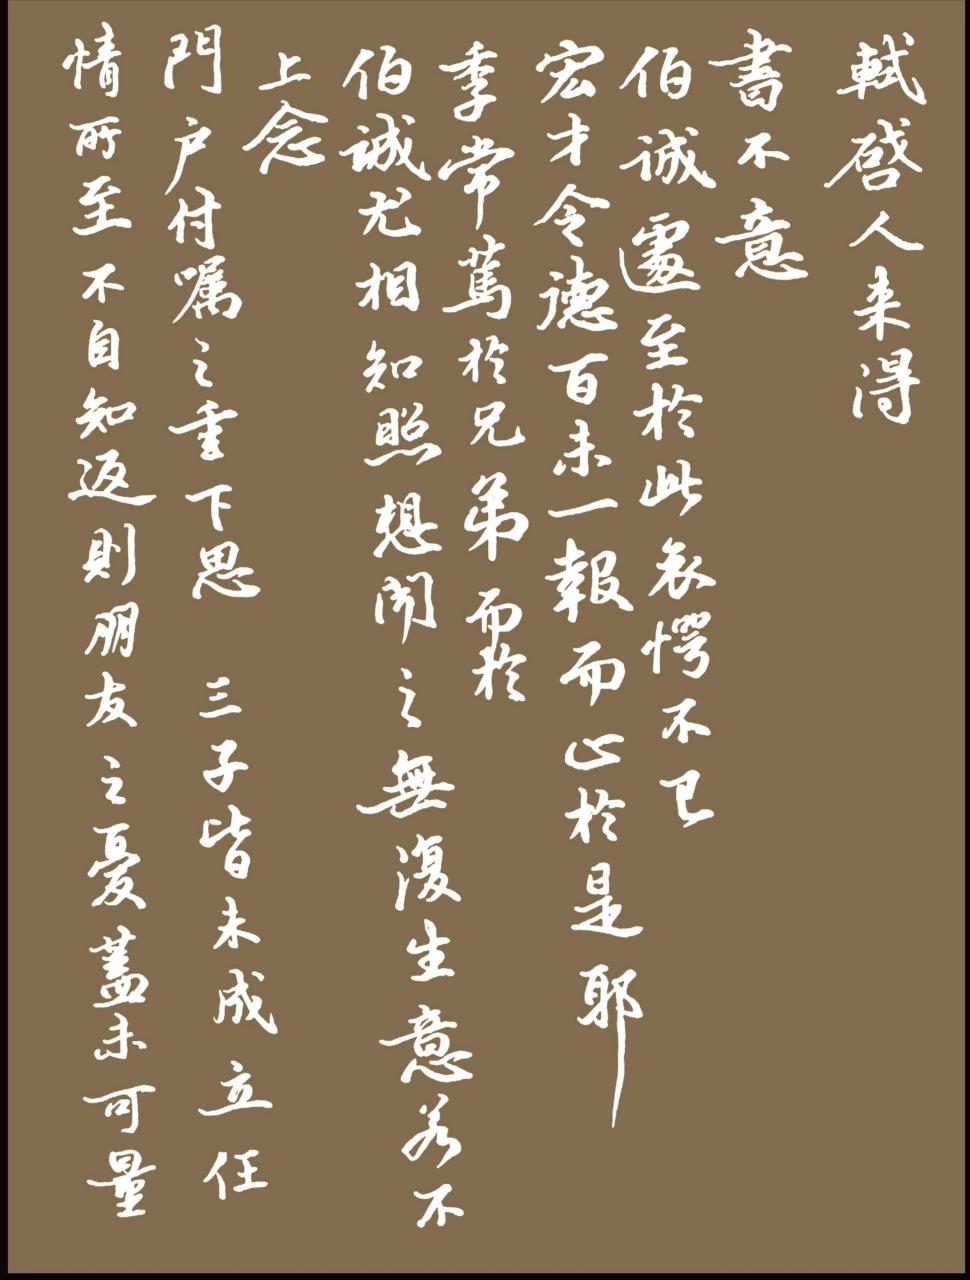 軾啓人来得
書不意
伯誠遽至於此哀愕不已
宏才令德百未一報而止於是耶
季常篤於兄弟而於
伯誠尤相知照想聞之無復生意若不
上念
門户付嘱之重下思三子皆未成立任
情所至不自知返則朋友之憂蓋未可量